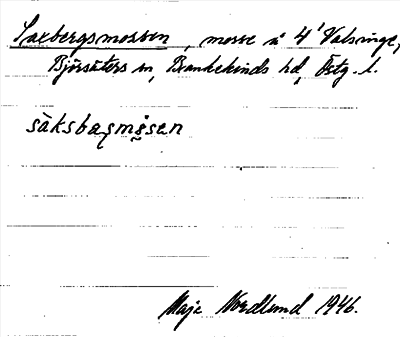 Saxbergsmossen, mosse å 4¹ Valsinge,
Björsäters sn, Bankekinds hd, Östg. l.
säksbaʂmåsen
Maja Nordlund 1946.